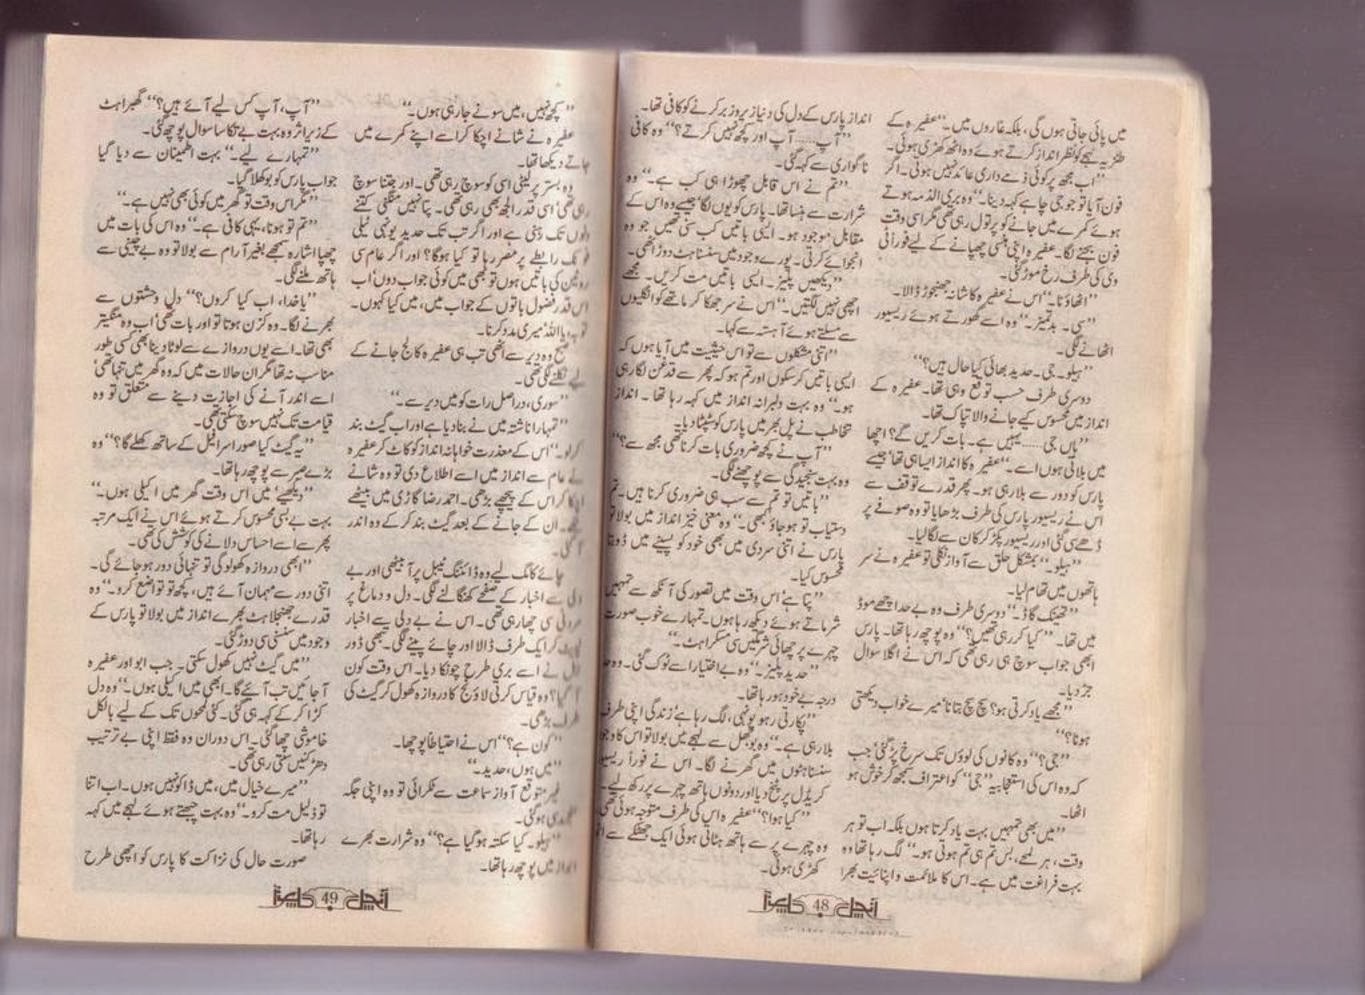 میں پائی جاتی ہوں گی، بلکہ غاروں میں۔“ عفیرہ کے
طنزیہ لہجے کو نظر انداز کرتے ہوئے وہ اٹھ کھڑی ہوئی۔
”اب مجھ پر کوئی ذمے داری عائد نہیں ہوتی۔ اگر
فون آیا تو جو جی چاہے کہہ دینا۔“ وہ بری الذمہ ہوتے
ہوئے کمرے میں جانے کو پر تول رہی تھی مگر اسی وقت
فون بجنے لگا۔ عفیرہ اپنی ہنسی چھپانے کے لیے فوراً ٹی
وی کی طرف رخ موڑ گئی۔
”اٹھاؤ نا۔“ اس نے عفیرہ کا شانہ جھنجوڑ ڈالا۔
”سی۔ بدتمیز۔“ وہ اسے گھورتے ہوئے ریسیور
اٹھانے لگی۔
”ہیلو۔ جی۔ حدید بھائی کیا حال ہیں؟“
دوسری طرف حسب توقع وہی تھا۔ عفیرہ کے
انداز میں محسوس کیے جانے والا تپاک تھا۔
”ہاں جی...... یہیں ہے۔ بات کریں گے؟ اچھا
میں بلاتی ہوں اے۔“ عفیرہ کا انداز ایسا ہی تھا جیسے
پارس کو دور سے بلا رہی ہو۔ پھر قدرے توقف سے
اس نے ریسیور پارس کی طرف بڑھایا تو وہ صوفے پر
ڈھے سی گئی اور ریسیور پکڑ کر کان سے لگا لیا۔
”ہیلو۔“ بمشکل حلق سے آواز نکلی تو عفیرہ نے سر
ہاتھوں میں تھام لیا۔
”تھینک گاڈ۔“ دوسری طرف وہ بے حد اچھے موڈ
میں تھا۔ ”کیا کر رہی تھیں؟“ وہ پوچھ رہا تھا۔ پارس
ابھی جواب سوچ ہی رہی تھی کہ اس نے اگلا سوال
جڑ دیا۔
”مجھے یاد کرتی ہو؟ سچ سچ بتانا‘ میرے خواب دیکھتی
ہو نا؟“
”جی؟“ وہ کانوں کی لوؤں تک سرخ پڑ گئی‘ جب
کہ وہ اس کی استعجابیہ ”جی“ کو اعتراف سمجھ کر خوش ہو
اٹھا۔
”میں بھی تمہیں بہت یاد کرتا ہوں بلکہ اب تو ہر
وقت، ہر لمحے، بس تم ہی تم ہوتی ہو۔“ لگ رہا تھا وہ
بہت فراغت میں ہے۔ اس کا ملائمت و اپنائیت بھرا
انداز پارس کے دل کی دنیا زیر و زبر کرنے کو کافی تھا۔
”آپ...... آپ اور کچھ نہیں کرتے؟“ وہ کافی
ناگواری سے کہہ گئی۔
”تم نے اس قابل چھوڑا ہی کب ہے۔“ وہ
شرارت سے ہنسا تھا۔ پارس کو یوں لگا‘ جیسے وہ اس کے
مقابل موجود ہو۔ ایسی باتیں کب سنی تھیں جو وہ
انجوائے کرتی۔ پورے وجود میں سنسناہٹ دوڑ اٹھی۔
”دیکھیں پلیز۔ ایسی باتیں مت کریں۔ مجھے
اچھی نہیں لگتیں۔“ اس نے سر جھکا کر ماتھے کو انگلیوں
سے مسلتے ہوئے آہستہ سے کہا۔
”اتنی مشکلوں سے تو اس حیثیت میں آیا ہوں کہ
ایسی باتیں کر سکوں اور تم ہو کہ پھر سے قدغن لگا رہی
ہو۔“ وہ بہت دلبرانہ انداز میں کہہ رہا تھا۔ انداز
تخاطب نے پل بھر میں پارس کو شپٹا دیا۔
”آپ نے کچھ ضروری بات کرنا تھی مجھ سے؟“
وہ بہت سنجیدگی سے پوچھنے لگی۔
”باتیں تو تم سے سب ہی ضروری کرنا ہیں۔ تم
دستیاب تو ہو جاؤ کبھی۔“ وہ معنی خیز انداز میں بولا تو
پارس نے اتنی سردی میں بھی خود کو پسینے میں ڈوبتا
محسوس کیا۔
”پتا ہے‘ اس وقت میں تصور کی آنکھ سے تمہیں
شرماتے ہوئے دیکھ رہا ہوں۔ تمہارے خوب صورت
چہرے پر چھائی شرمگیں سی مسکراہٹ۔“
”حدید پلیز۔“ وہ بے اختیار اسے ٹوک گئی۔ وہ حد
درجہ بے خود ہو رہا تھا۔
”پکارتی رہو یونہی، لگ رہا ہے‘ زندگی اپنی طرف
بلا رہی ہے۔“ وہ بوجھل سے لہجے میں بولا تو اس کا وجود
سنسناہٹوں میں گھرنے لگا۔ اس نے فوراً ریسیور
کریڈل پر پٹخ دیا اور دونوں ہاتھ چہرے پر رکھ لیے۔
”کیا ہوا؟“ عفیرہ اس کی طرف متوجہ ہوئی تھی۔
وہ چہرے پر سے ہاتھ ہٹاتی ہوئی ایک جھٹکے سے اٹھ
کھڑی ہوئی۔
آنچل 48
”کچھ نہیں، میں سونے جا رہی ہوں۔“
عفیرہ نے شانے اچکا کر اسے اپنے کمرے میں
جاتے دیکھا تھا۔
وہ بستر پر لیٹی اسی کو سوچ رہی تھی۔ اور جتنا سوچ
رہی تھی‘ اسی قدر الجھ بھی رہی تھی۔ پتا نہیں منگنی کتنے
دنوں تک رہنی ہے اور اگر تب تک حدید یونہی ٹیلی
فونک رابطے پر مصر رہا تو کیا ہوگا؟ اور اگر عام سی
روٹین کی باتیں ہوں تو بھی میں کوئی جواب دوں‘ اب
اس قدر فضول باتوں کے جواب میں، میں کیا کہوں۔
توبہ یا اللہ‘ میری مدد کرنا۔
صبح وہ دیر سے اٹھی تب ہی عفیرہ کالج جانے کے
لیے نکلنے لگی تھی۔
”سوری، دراصل رات کو میں دیر سے۔“
”تمہارا ناشتہ میں نے بنا دیا ہے اور اب گیٹ بند
کر لو۔“ اس کے معذرت خواہانہ انداز کو کاٹ کر عفیرہ
نے عام سے انداز میں اسے اطلاع دی تو وہ شانے
اچکا کر اس کے پیچھے بڑھی۔ احمد رضا گاڑی میں بیٹھے
تھے۔ ان کے جانے کے بعد گیٹ بند کر کے وہ اندر
آ گئی۔
چائے کا مگ لیے وہ ڈائننگ ٹیبل پر آ بیٹھی اور بے
دلی سے اخبار کے صفحے کھنگالنے لگی۔ دل و دماغ پر
سی چھا رہی تھی۔ اس نے بے دلی سے اخبار
کر ایک طرف ڈالا اور چائے پینے لگی۔ تبھی ڈور
بیل نے اسے بری طرح چونکا دیا۔ اس وقت کون
آ گیا؟ وہ قیاس کرتی لاؤنج کا دروازہ کھول کر گیٹ کی
طرف بڑھی۔
”کون ہے؟“ اس نے احتیاطاً پوچھا۔
”میں ہوں، حدید۔“
غیر متوقع آواز سماعت سے ٹکرائی تو وہ اپنی جگہ
ہو گئی۔
”ہیلو۔ کیا سکتہ ہو گیا ہے؟“ وہ شرارت بھرے
انداز میں پوچھ رہا تھا۔
”آپ، آپ کس لیے آئے ہیں؟“ گھبراہٹ
کے زیر اثر وہ بہت بے تکا سا سوال پوچھ گئی۔
”تمہارے لیے۔“ بہت اطمینان سے دیا گیا
جواب پارس کو بوکھلا گیا۔
”مگر اس وقت تو گھر میں کوئی بھی نہیں ہے۔“
”تم تو ہو نا، یہی کافی ہے۔“ وہ اس کی بات میں
چھپا اشارہ سمجھے بغیر آرام سے بولا تو وہ بے چینی سے
ہاتھ ملنے لگی۔
”یا خدا، اب کیا کروں؟“ دل وحشتوں سے
بھرنے لگا۔ وہ کزن ہوتا تو اور بات تھی‘ اب وہ منگیتر
بھی تھا۔ اسے یوں دروازے سے لوٹا دینا بھی کسی طور
مناسب نہ تھا مگر ان حالات میں کہ وہ گھر میں تنہا تھی‘
اسے اندر آنے کی اجازت دینے سے متعلق تو وہ
قیامت تک نہیں سوچ سکتی تھی۔
”یہ گیٹ کیا صور اسرافیل کے ساتھ کھلے گا؟“ وہ
بڑے صبر سے پوچھ رہا تھا۔
”دیکھیے‘ میں اس وقت گھر میں اکیلی ہوں۔“
بہت بے بسی محسوس کرتے ہوئے اس نے ایک مرتبہ
پھر سے اسے احساس دلانے کی کوشش کی تھی۔
”ابھی دروازہ کھولو گی تو تنہائی دور ہو جائے گی۔
اتنی دور سے مہمان آئے ہیں، کچھ تو تواضع کرو۔“ وہ
قدرے جھنجلاہٹ بھرے انداز میں بولا تو پارس کے
وجود میں سنسنی سی دوڑ گئی۔
”میں گیٹ نہیں کھول سکتی۔ جب ابو اور عفیرہ
آ جائیں تب آئیے گا۔ ابھی میں اکیلی ہوں۔“ وہ دل
کڑا کر کے کہہ ہی گئی۔ کئی لمحوں تک کے لیے بالکل
خاموشی چھا گئی۔ اس دوران وہ فقط اپنی بے ترتیب
دھڑکنیں سنتی رہی تھی۔
”میرے خیال میں، میں ڈاکو نہیں ہوں۔ اب اتنا
تو ذلیل مت کرو۔“ وہ بہت چبھتے ہوئے لہجے میں کہہ
رہا تھا۔
صورت حال کی نزاکت کا پارس کو اچھی طرح
آنچل 49